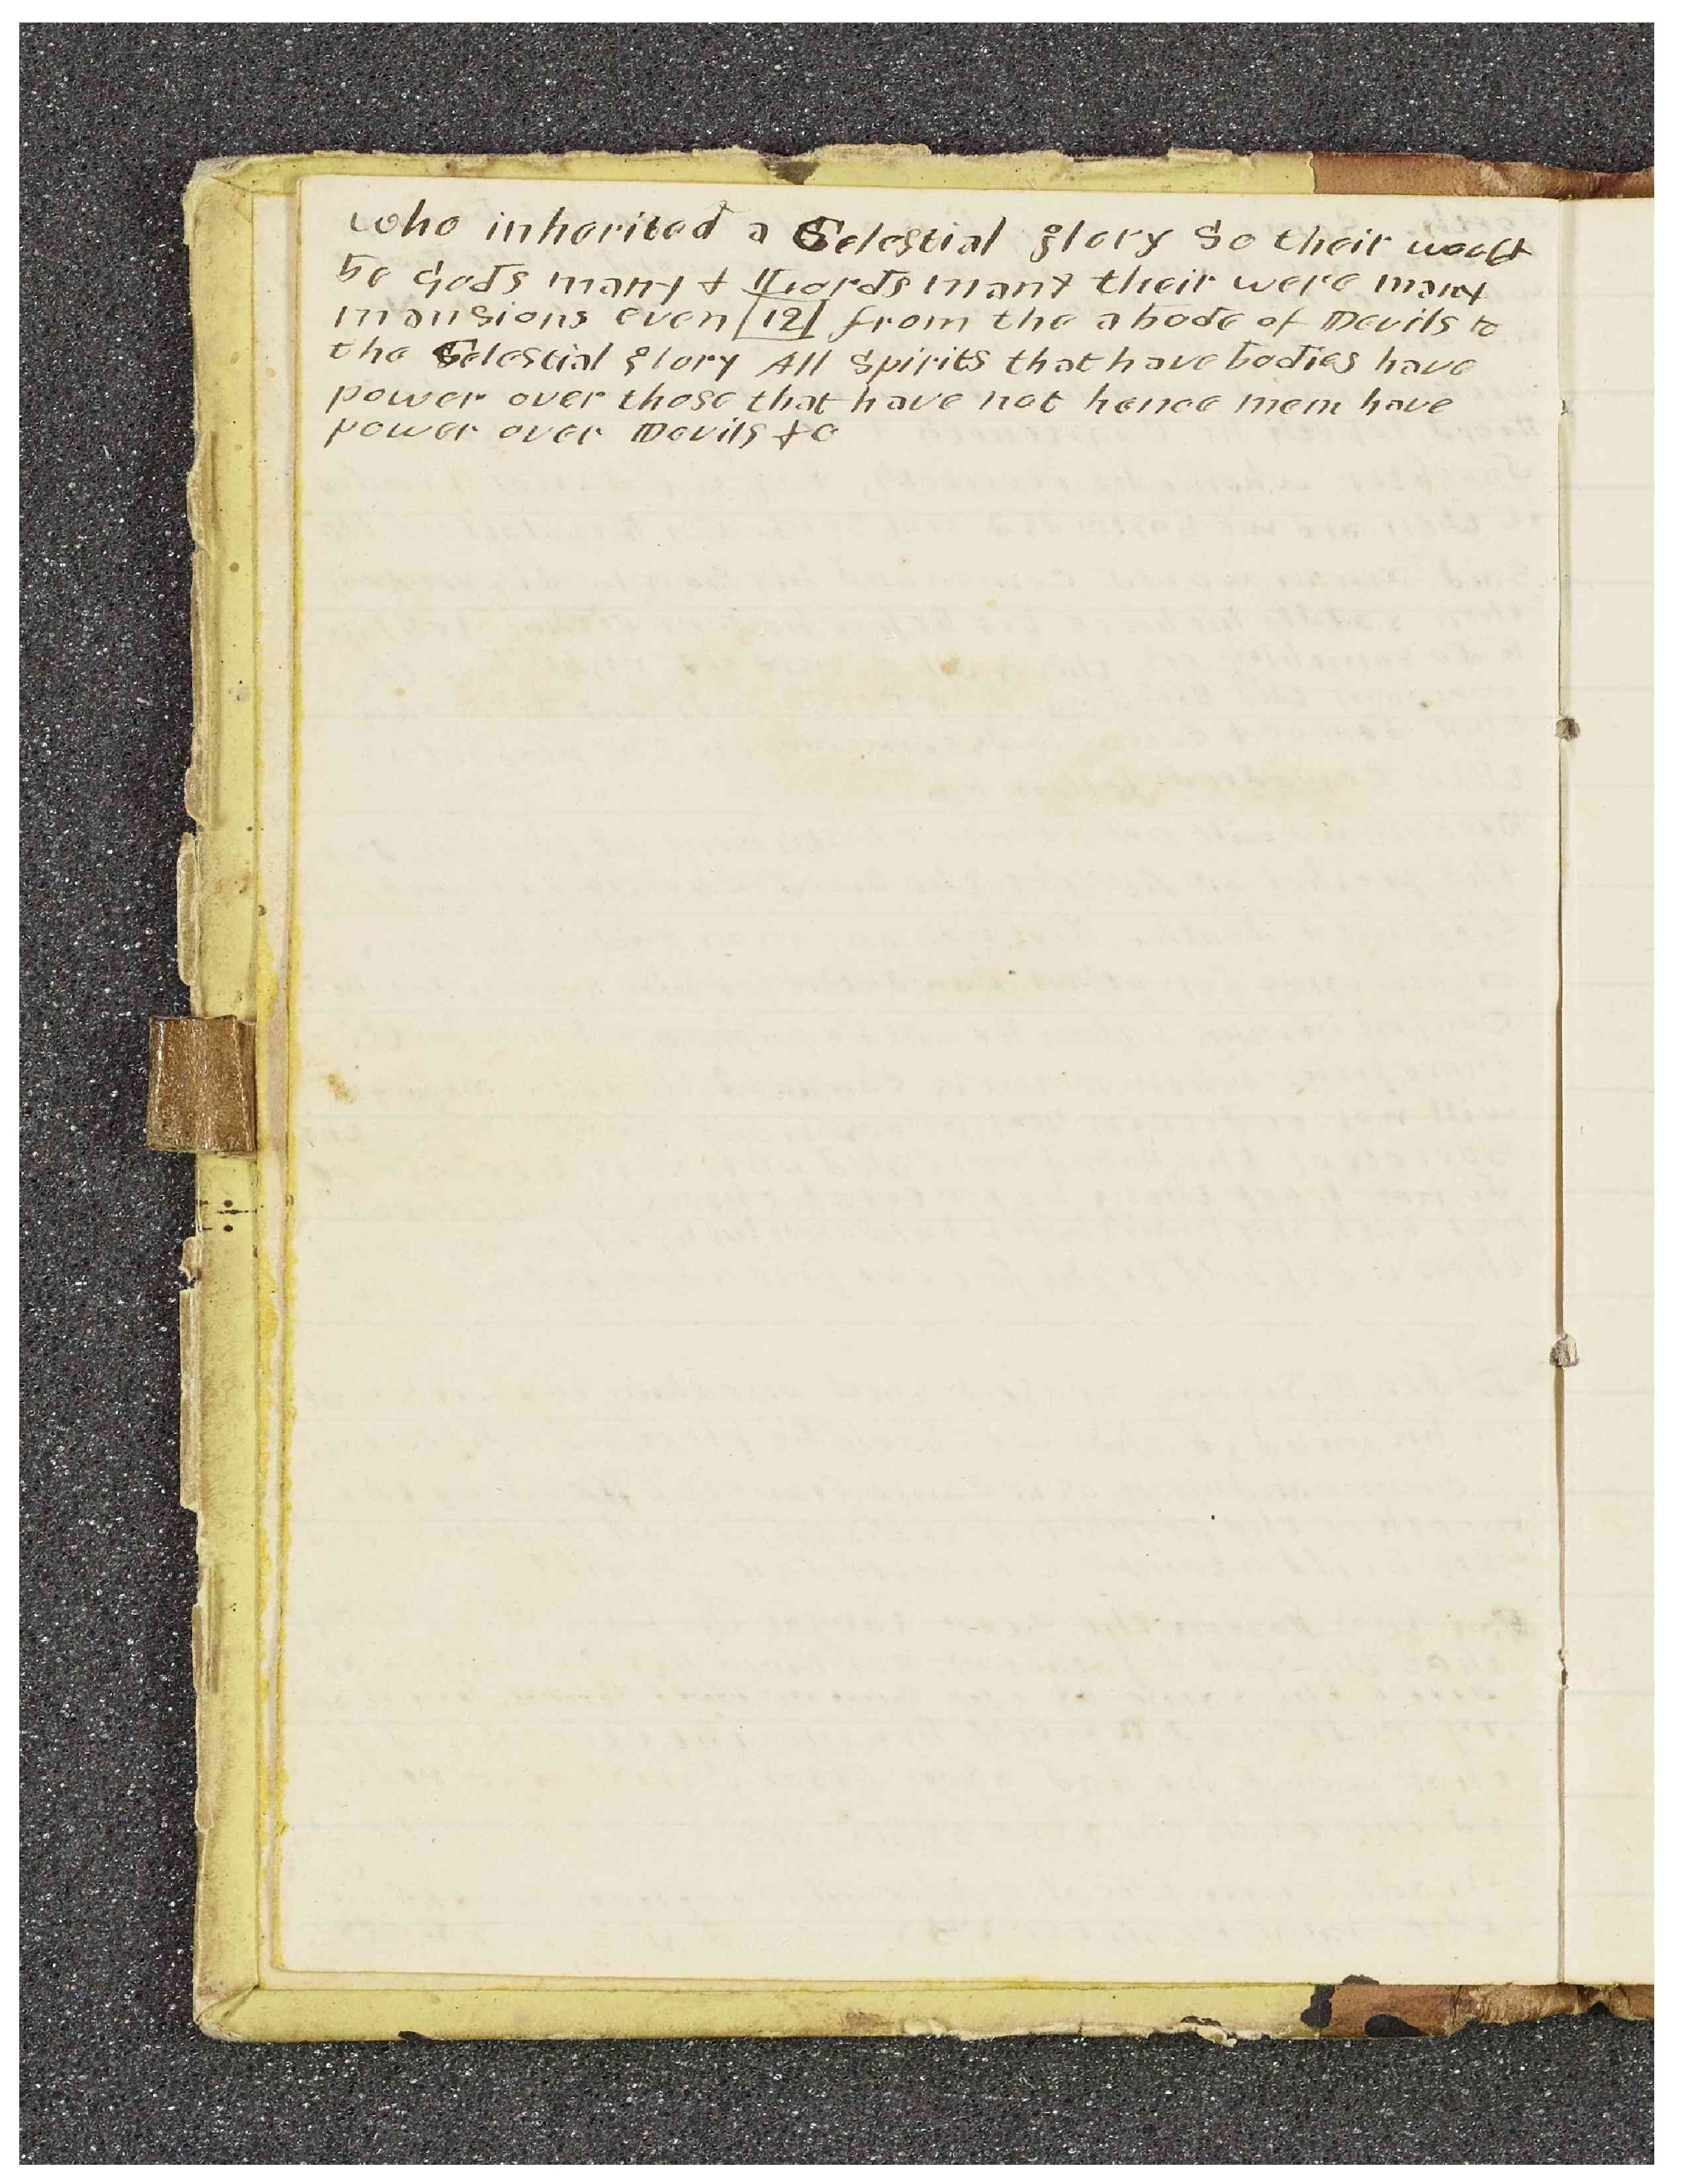 who inherited a Celestial glory So their would
be gods many & Lords many their were many
mansions even 12 from the abode of Devils to
the Celestial glory All Spirits that have bodies have
power over those that have not hence mem have
power over Devils &c